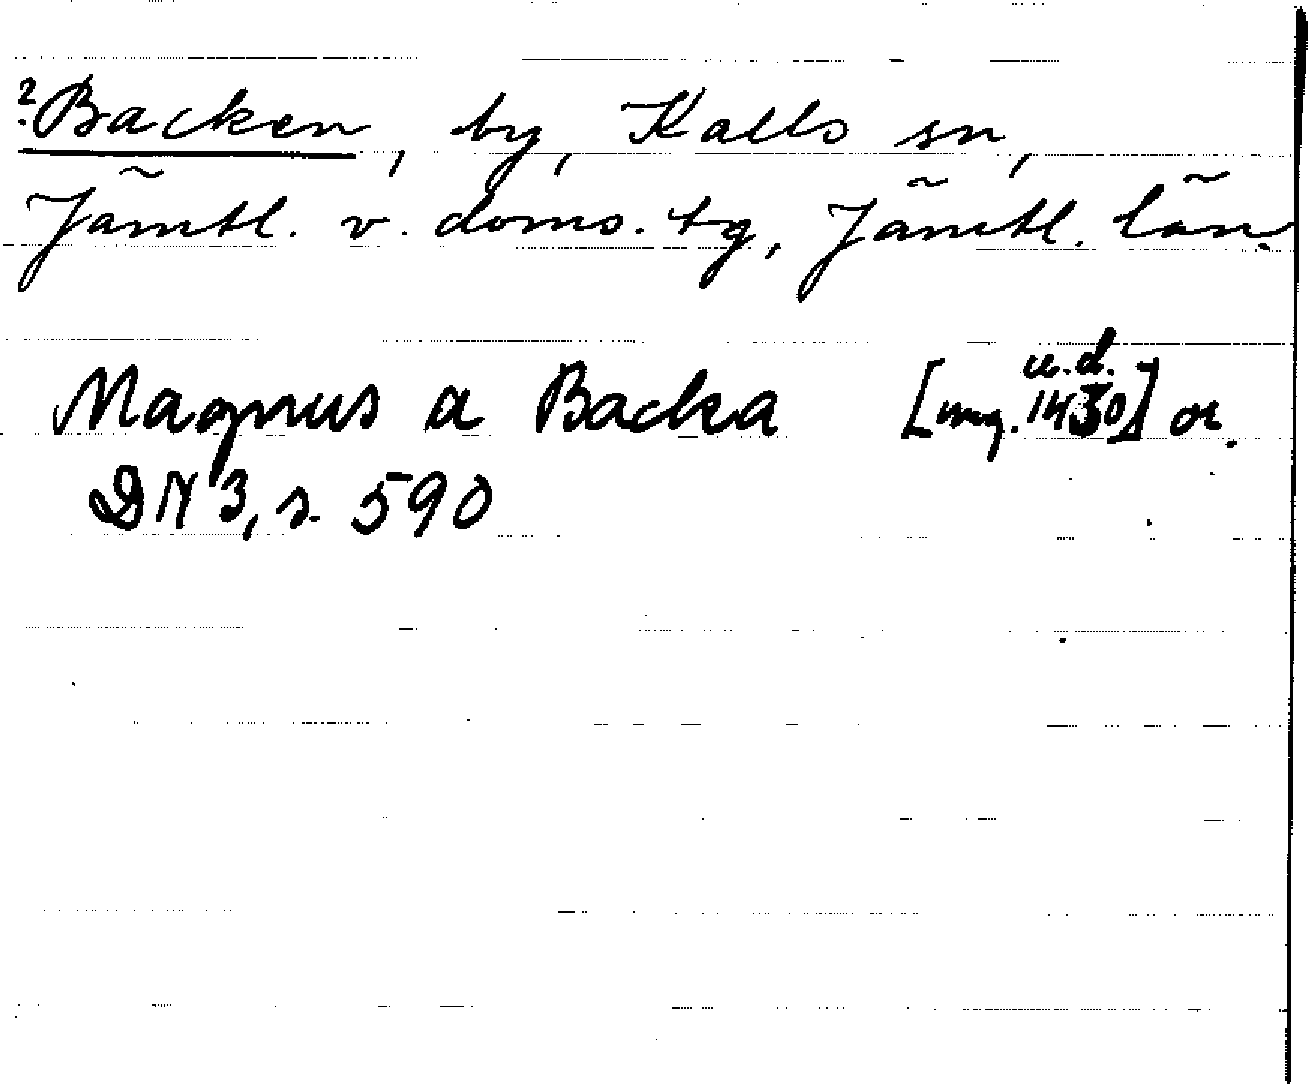 ?Backen, by, Kalls sn,
Jämtl. v. doms. tg, Jämtl. län.
Magnus a Backa [u.d. omg. 1430] or.
DN 3, s. 590